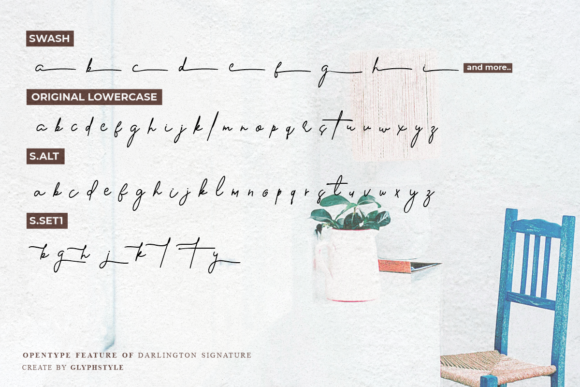 SWASH
a b c d e f g h i and more..
ORIGINAL LOWERCASE
a b c d e f g h i j k l m n o p q r s t u v w x y z
S.ALT
a b c d e f g h i j k l m n o p q r s t u v w x y z
S.SET1
OPENTYPE FEATURE OF DARLINGTON SIGNATURE
CREATE BY GLYPHSTYLE